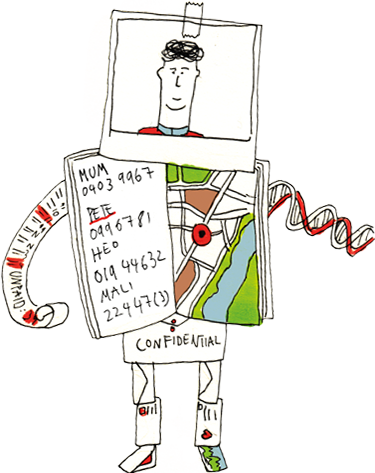 MUM
0903 9967
PETE
0990781
HED
019 44632
MALI
22447(3)
UNPAID:
CONFIDENTIAL